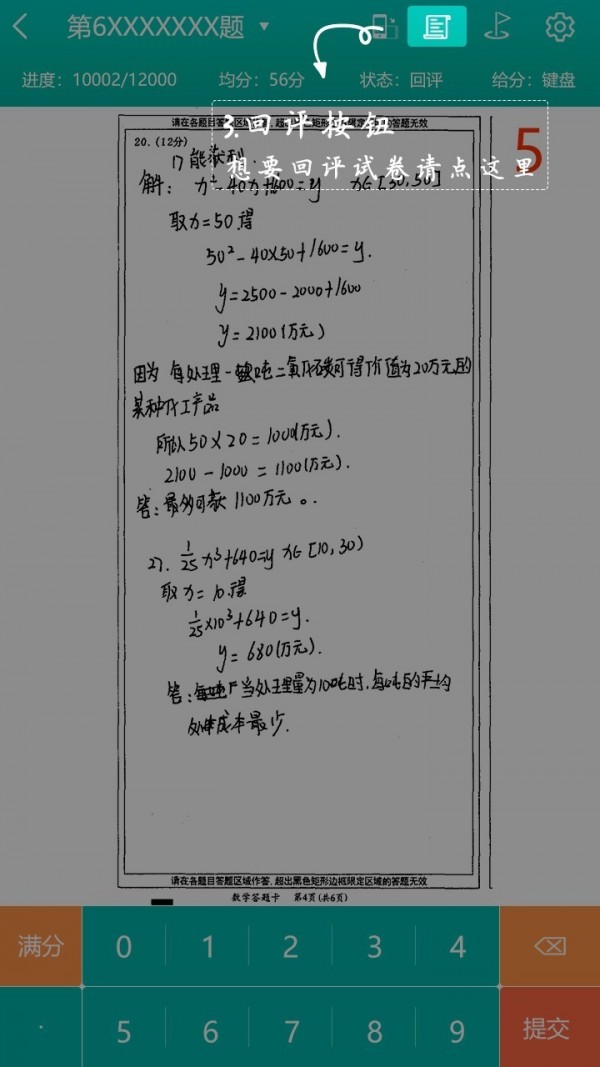 第6XXXXXXX题
进度：10002/12000 均分：56分 状态：回评 给分：键盘
请在各题目答题区域作答，超出黑色矩形边框限定区域的答题无效
3.回评按钮
想要回评试卷请点这里
5
20.（12分）
1) 能获利.
解： x²-40x+1600=y x∈[30,50]
取x=50.得
50²-40×50+1600=y.
y=2500-2000+1600
y=2100(万元)
因为 每处理一吨二氧化碳可得价值为20万元的
某种化工产品
所以50×20=1000(万元).
2100-1000=1100(万元).
答：最多可 1100万元。
2). 1/25 x³+640=y x∈[10,30)
取x=10.得
1/25×10³+640=y.
y=680(万元).
答： 当处理量为10吨时，每吨的平均
处理成本最少.
请在各题目答题区域作答，超出黑色矩形边框限定区域的答题无效
数学答题卡 第4页(共6页)
满分 0 1 2 3 4
· 5 6 7 8 9 提交